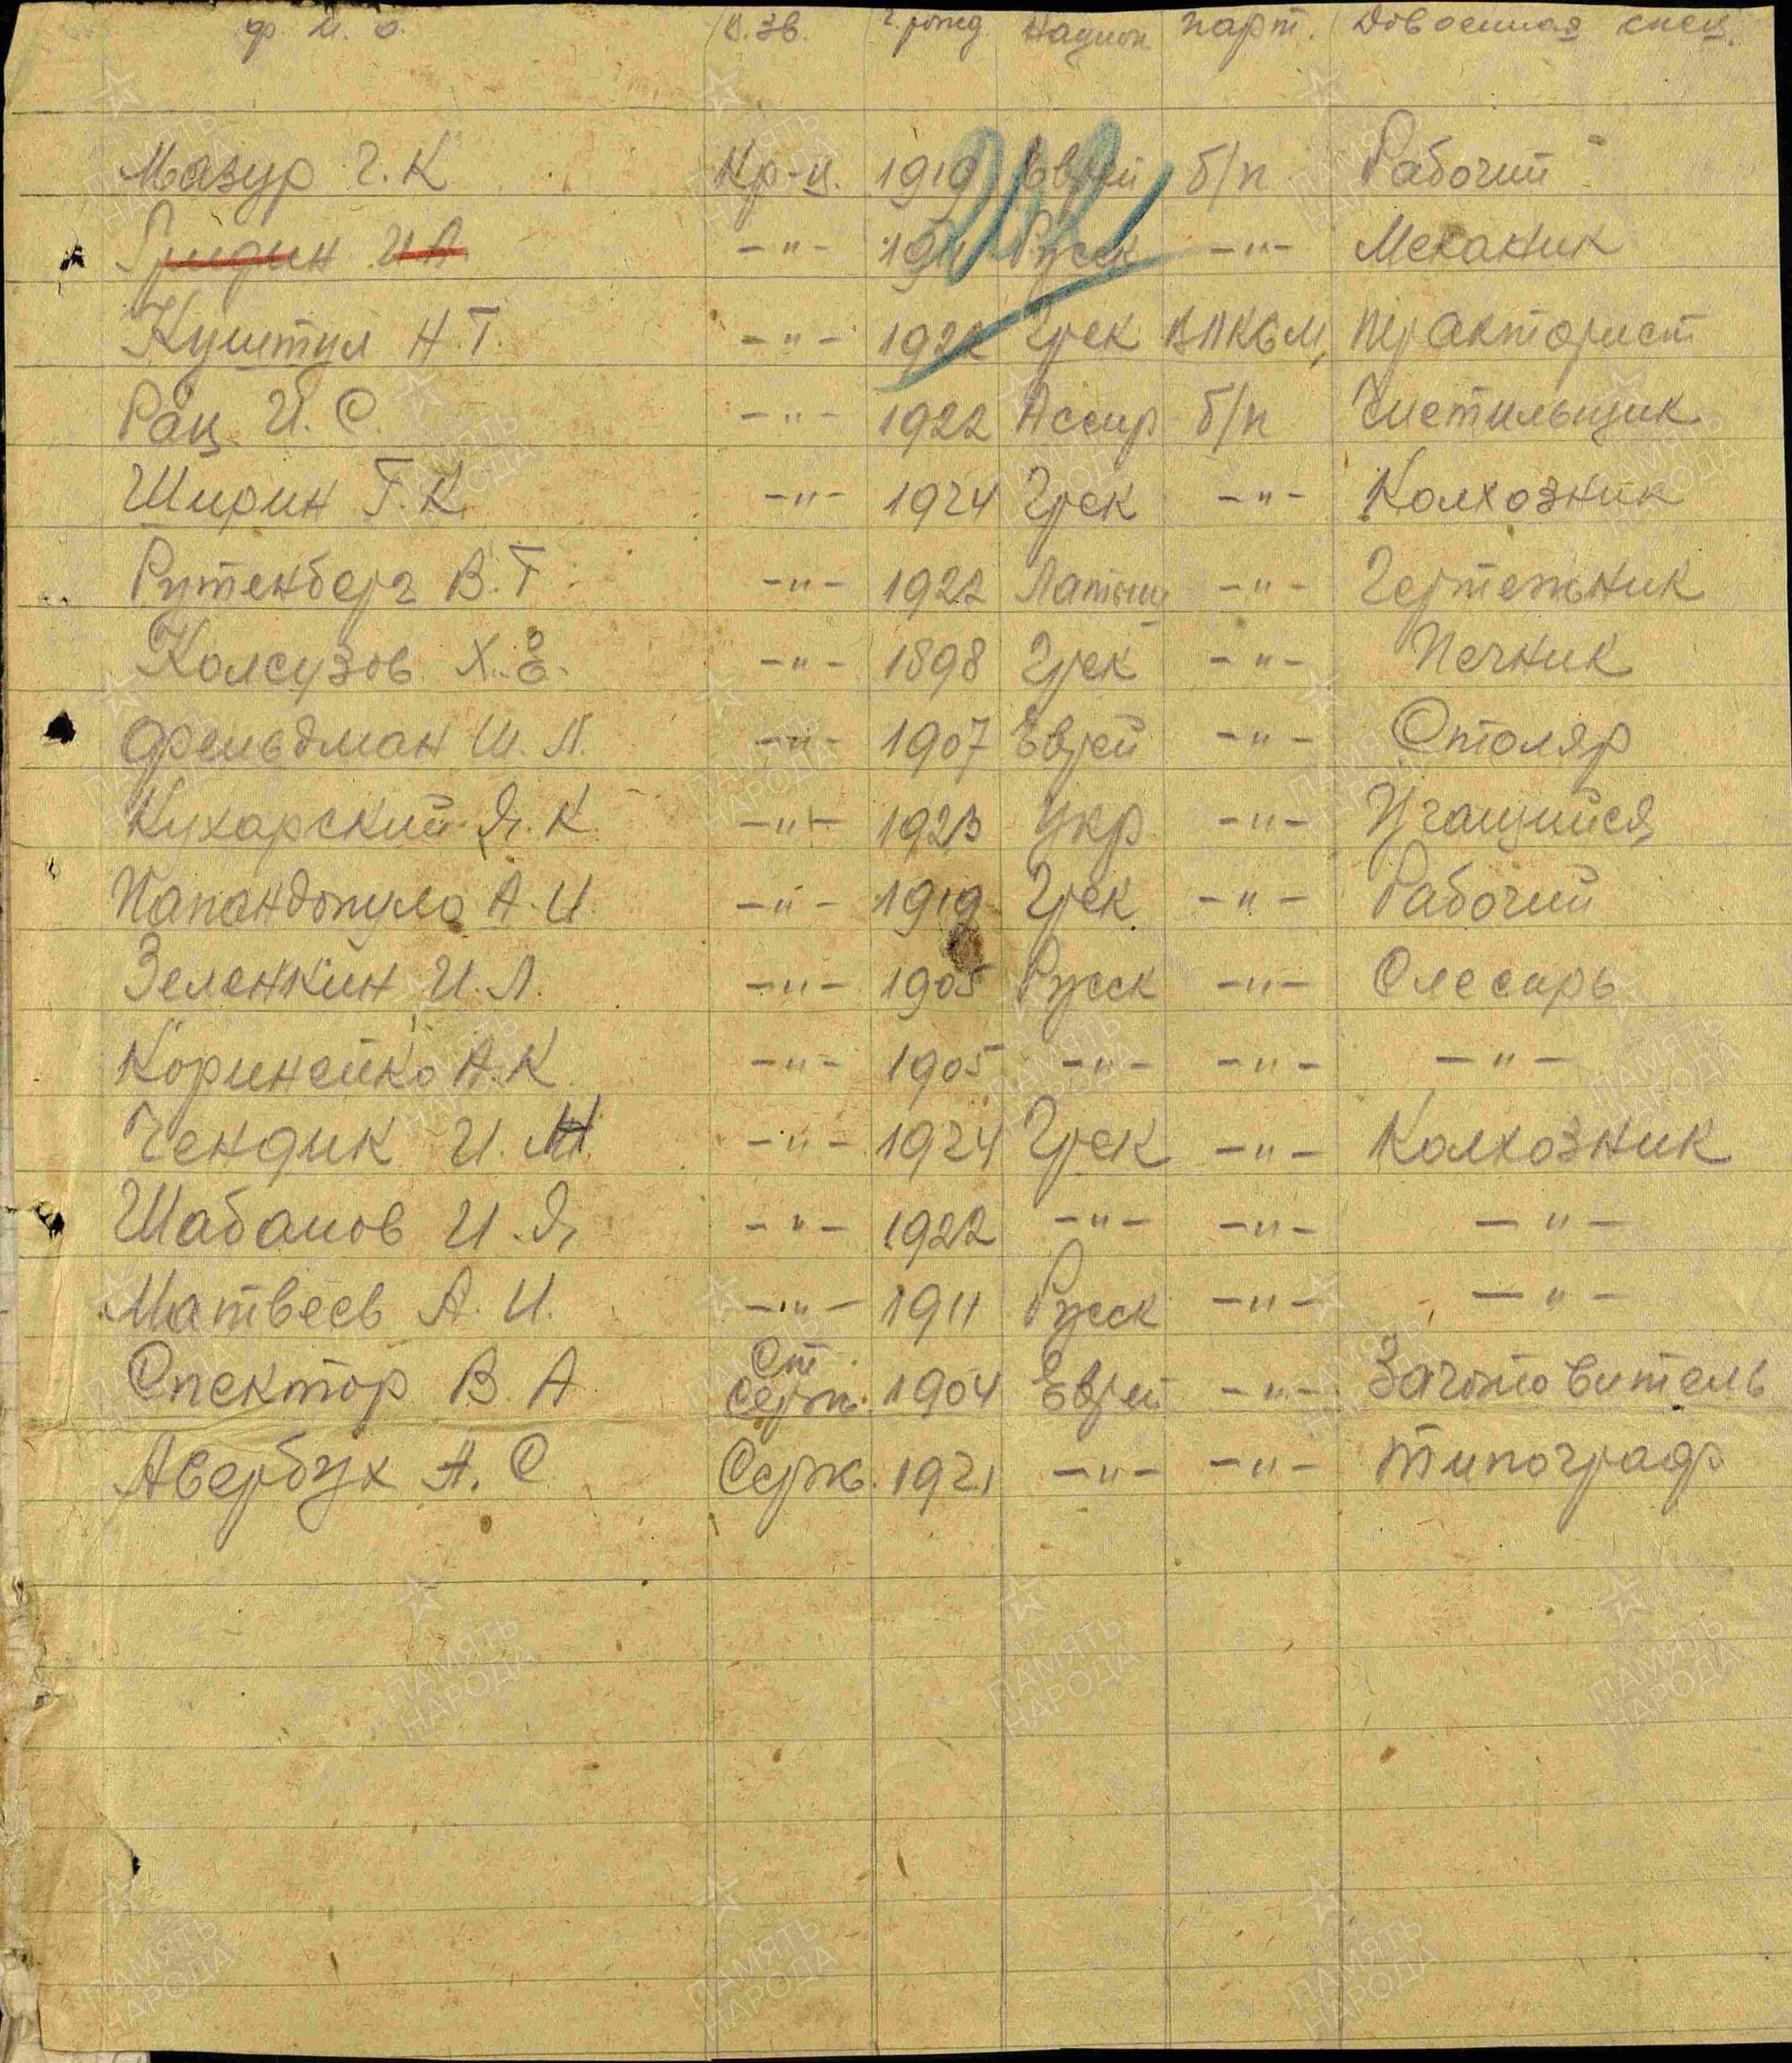 ф. И. О. В. зв. г. рожд Национ парт. Довоенная спец.
Мазур Г. К Кр-ц. 1919 Еврей б/п Рабочий
Гридин И А. -"- 1911 Русск -"- Механик
Куштул Н. Т. -"- 1922 Грек ВЛКСМ, Тракторист
Рац И. С. -"- 1922 Ассир б/п Чистильщик
Ширин Г. К. -"- 1924 Грек -"- Колхозник
Рутенберг В. Г. -"- 1922 Латыш -"- Чертежник
Колсузов Х. Е. -"- 1898 Грек -"- Печник
Фельдман Ш. Л. -"- 1907 Еврей -"- Столяр
Кухарский Я. К. -"- 1923 Укр -"- Учащийся
Папандопуло А. И. -"- 1919 Грек -"- Рабочий
Зеленкин И. Л. -"- 1905 Русск -"- Слесарь
Коринейко А. К. -"- 1905 -"- -"- -"-
Чендик И. М. -"- 1924 Грек -"- Колхозник
Шабанов И. Я. -"- 1922 -"- -"- -"-
Матвеев А. И. -"- 1911 Русск -"- -"-
Спектор В. А Ст. Серж. 1904 Еврей -"- Заготовитель
Авербух А. С Серж. 1921 -"- -"- Типограф